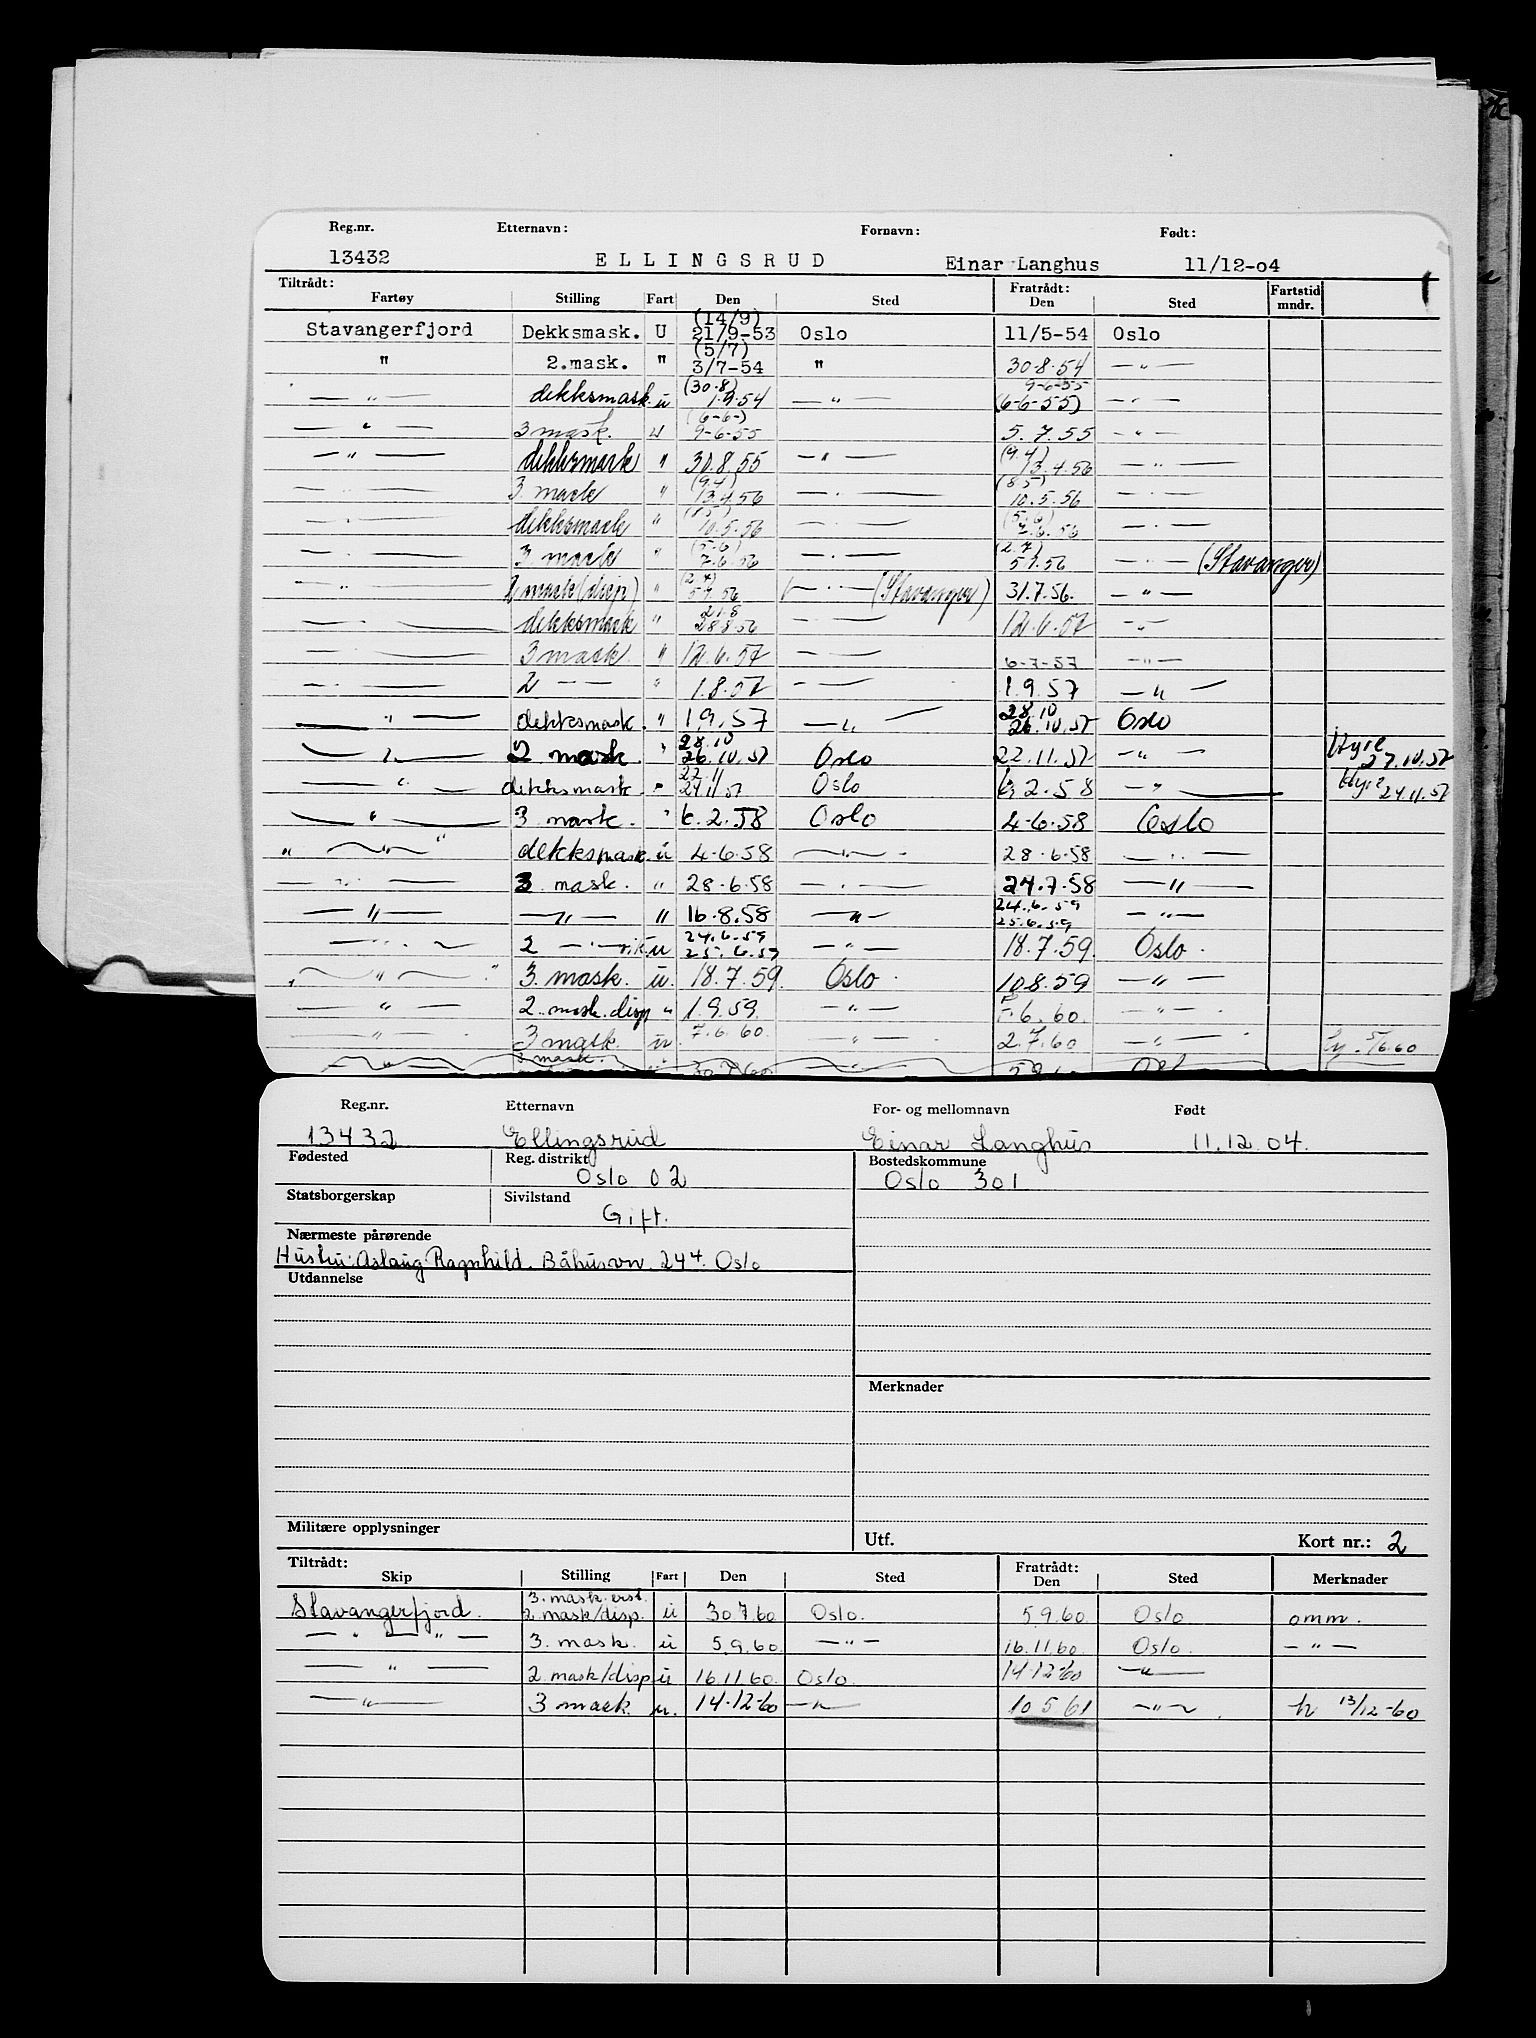 Reg.nr. Etternavn: Fornavn: Født:
13432 ELLINGSRUD Einar Langhus 11/12-04
Tiltrådt: Fratrådt: Fartstid
Fartøy Stilling Fart Den Sted Den Sted mndr.
(14/9)
Stavangerfjord Dekksmask. U 21/9-53 Oslo 11/5-54 Oslo
(5/7)
" 2.mask. " 3/7-54 " 30-8-54 — " —
(30-8) 9-6-55
— " — dekksmask. u 1.9.54 — " — (6-6-55) — " —
(6-6-)
— " — 3 mask. u 9-6-55 5.7.55 — " —
(9.4)
— " — dekksmask " 30.8.55 — " — 13.4.56 — " —
(9.4) (8.5)
— " — 3. mask " 13.4.56 — " — 10.5.56 — " —
(5.6)
— " — dekksmask " 10.5.56 — " — 7.6.56 — " —
(5-6) (2.7)
— " — 3. mask " 7.6.56 — " — 5.7.56 — " — (Stavanger)
(2.7)
— " — 2 mask (disp) " 5.7.56 — " — (Stavanger) 31.7.56. — " —
21.8
— " — dekksmask " 28.8.56 — " — 12.6.57 — " —
— " — 3 mask " 12.6.57 — " — 6-7-57 — " —
— " — 2 — " — " 1.8.57 — " — 1.9.57 — " —
28.10
— " — dekksmask. " 1.9.57 — " — 26.10.57 Oslo
28.10 Hyre
— " — 2 mask. " 26.10.57 Oslo 22.11.57 — " — 27.10.57
22.11
— " — dekksmask. " 24.11.57 Oslo 6.2.58 — " — Hyre 24.11.57
— " — 3 mask. " 6.2.58 Oslo 4-6-58 Oslo
— " — dekksmask. u 4-6-58 — " — 28-6-58 — " —
— " — 3. mask. " 28-6-58 — " — 24.7.58 — " —
24.6.59
— " — — " — " 16.8.58 — " — 25.6.59 — " —
24.6.59
— " — 2 — " — u 25.6.59 — " — 18.7.59. Oslo.
— " — 3. mask. u. 18.7.59. Oslo 10.8.59 — " —
— " — 2. mask. disp " 1.9.59. — " — 6.60. — " —
— " — 3 mask. u. 7.6.60. — " — 2.7.60 — " — 5/6.60
3 mask.
Reg.nr. Etternavn For- og mellomnavn Født
13432 Ellingsrud Einar Langhus 11.12.04.
Fødested Reg. distrikt Bostedskommune
Oslo 02 Oslo 301
Statsborgerskap Sivilstand
Gift.
Nærmeste pårørende
Hustru: Aslaug Ragnhild. Båhusvn. 244. Oslo
Utdannelse
Merknader
Militære opplysninger Utf. Kort nr.: 2
Tiltrådt: Fratrådt:
Skip Stilling Fart Den Sted Den Sted Merknader
3. mask. erst.
Stavangerfjord. 2. mask/disp. u 30.7.60 Oslo. 5.9.60. Oslo omm.
— " — " — 3. mask. u 5.9.60. — " — 16.11.60. Oslo. — " —
— " — 2. mask/disp u 16.11.60. Oslo. 14-12-60 — " —
— " — 3 mask. u. 14-12-60 — " — 10.5.61 — " — h 13/12-60